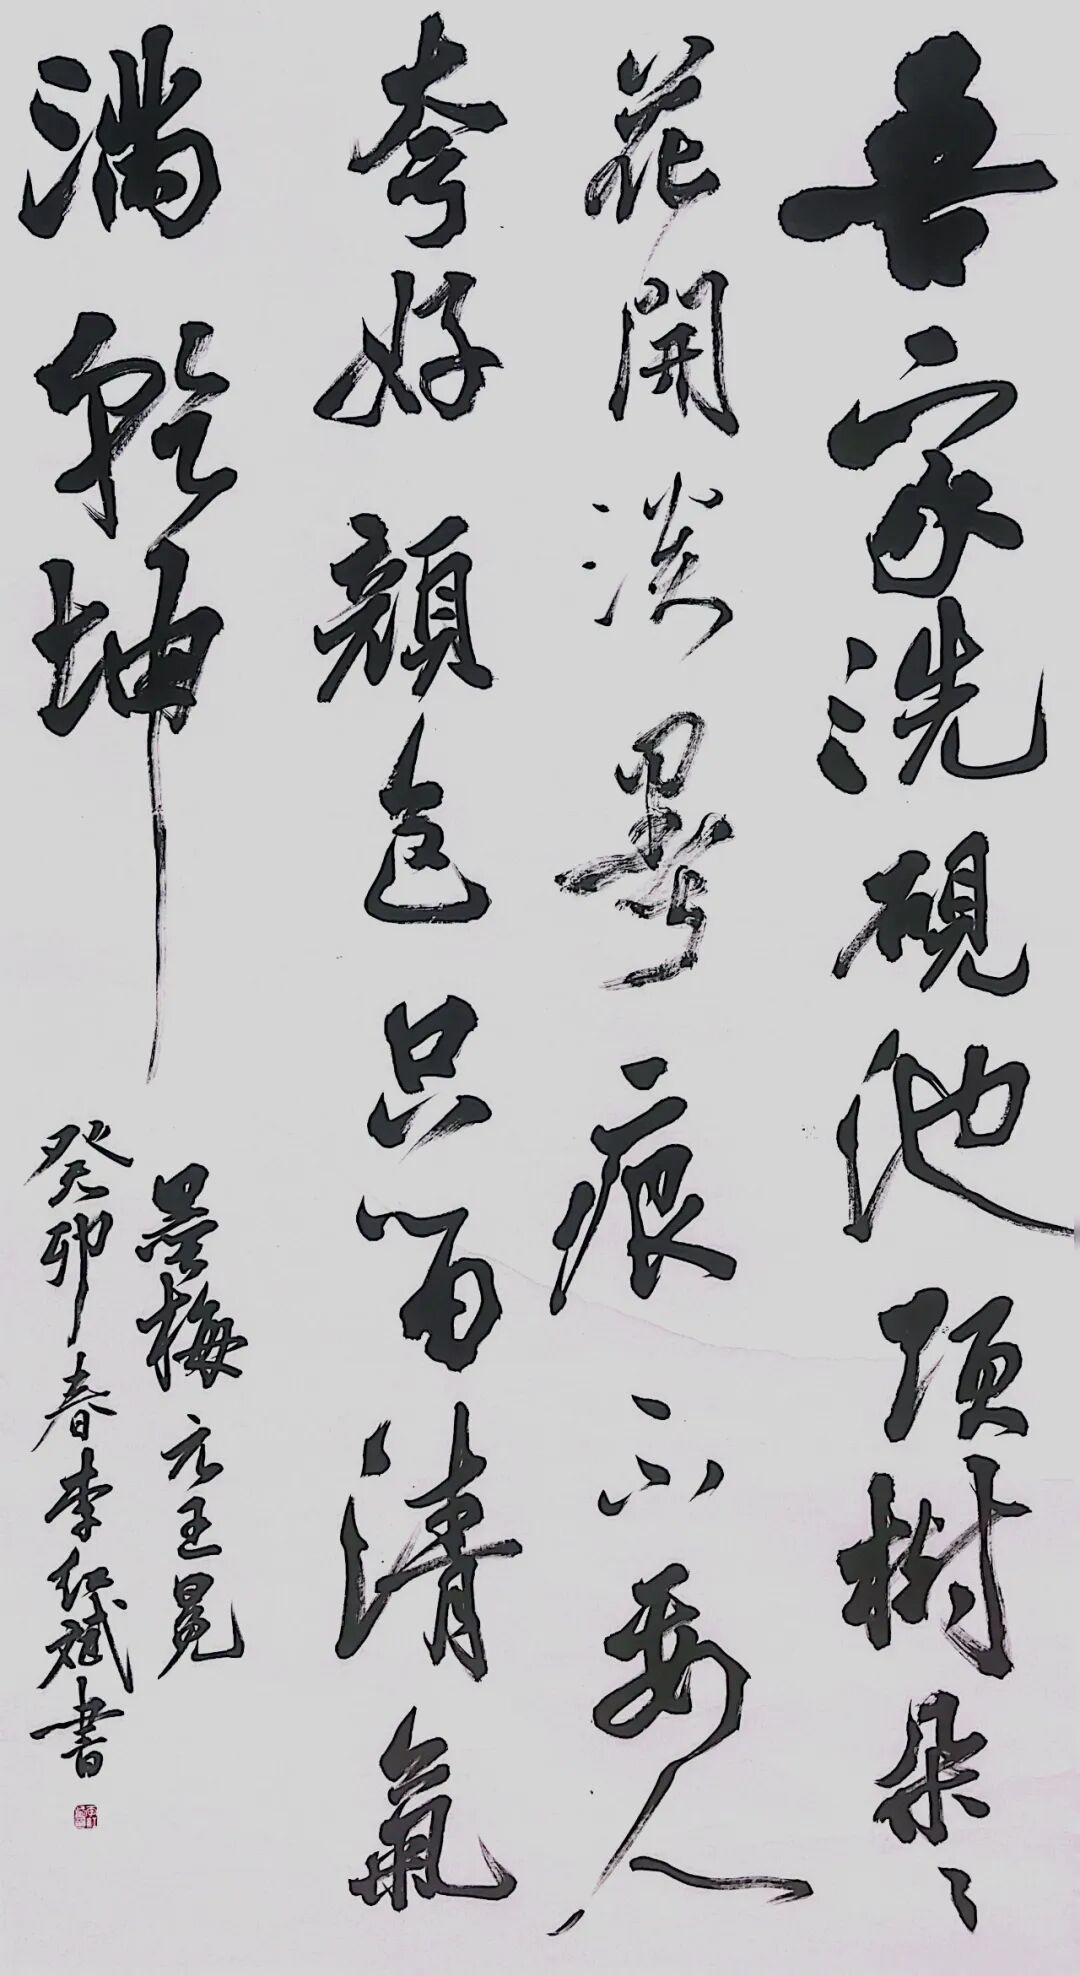 吾家洗硯池頭樹朵々
花開淡墨痕不要人
夸好顏色只留清氣
滿乾坤
墨梅元王冕
癸卯春李紅斌書